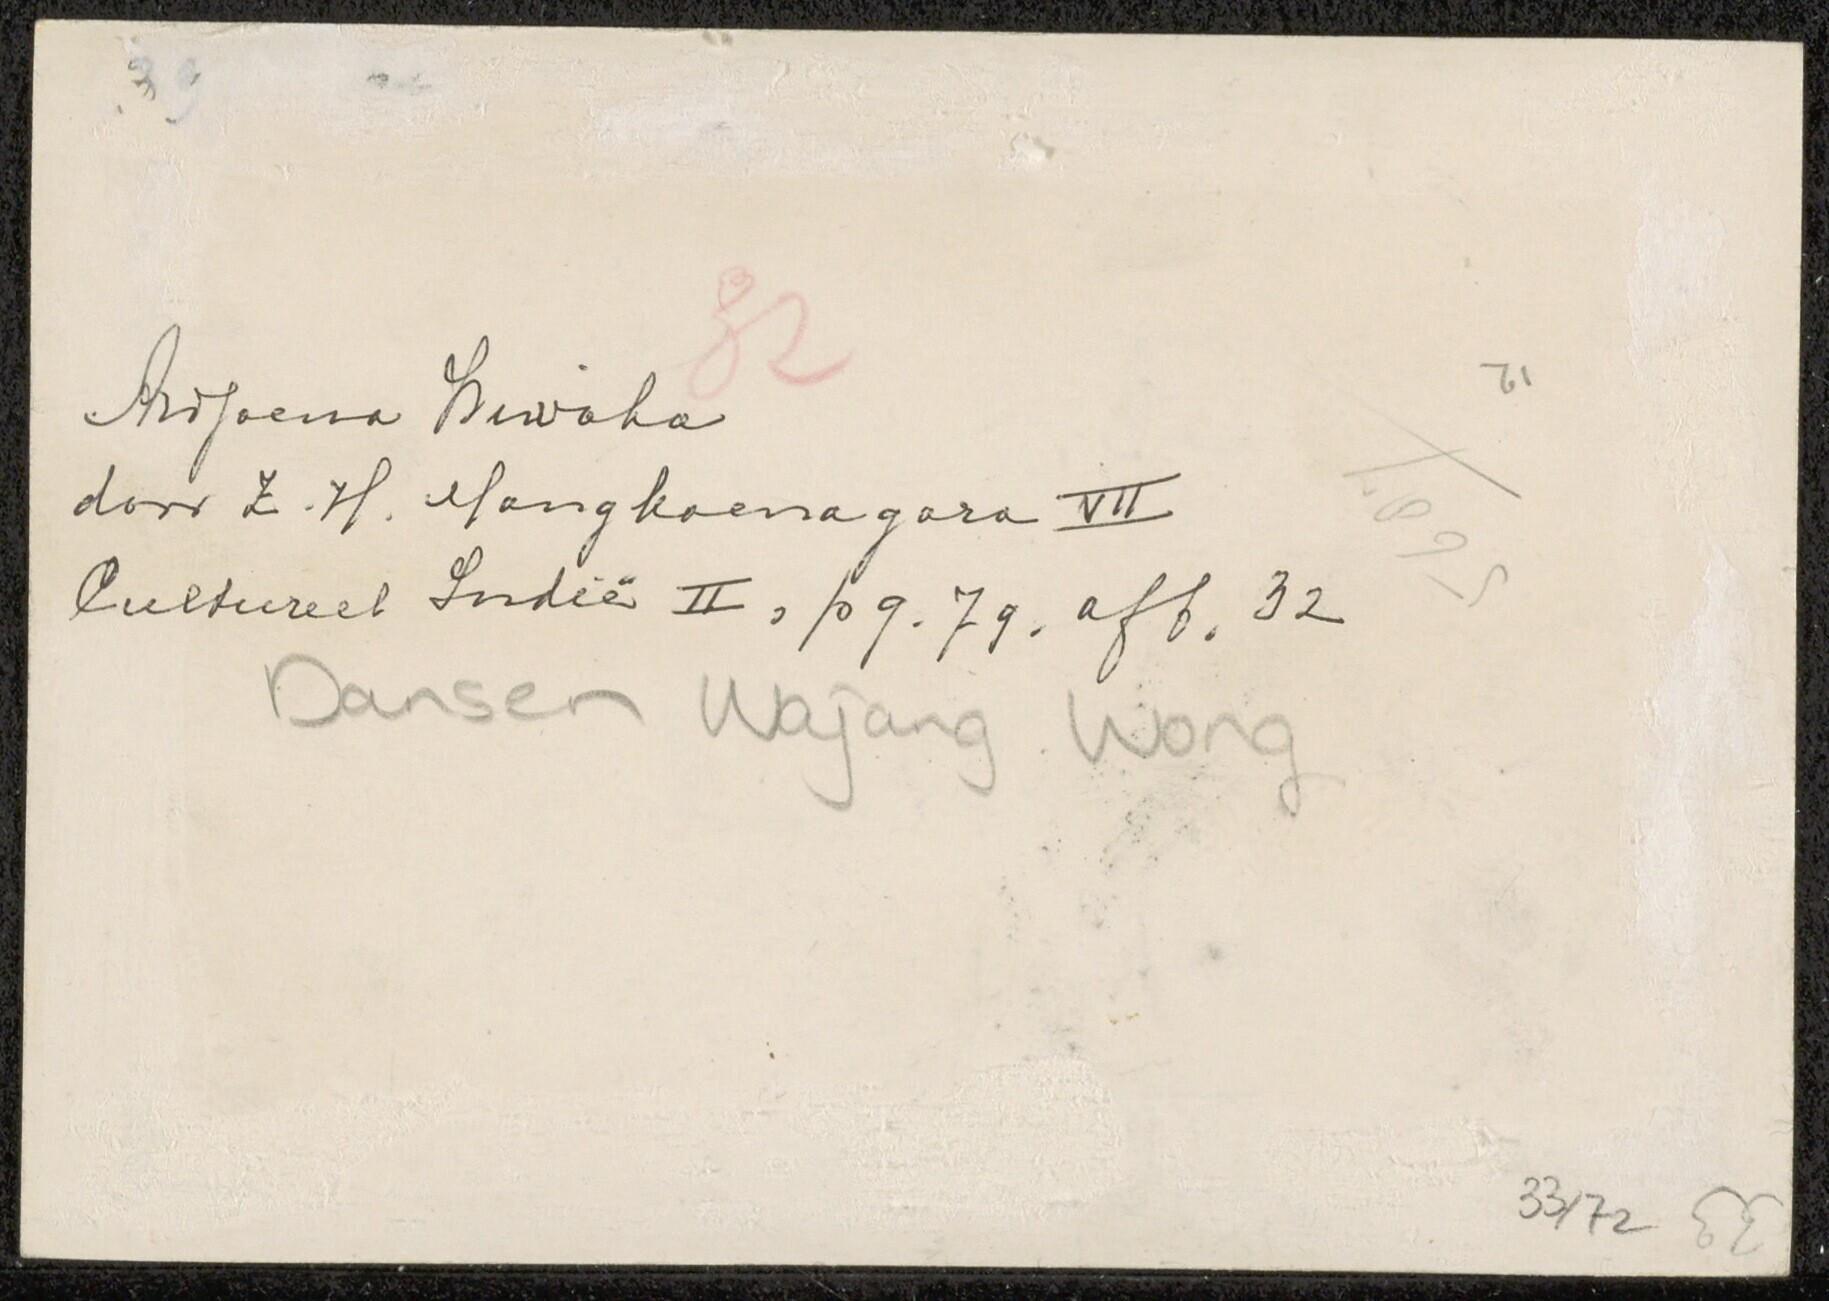 32
Ardjoena Wiwaha
door Z.H. Mangkoenagara VII
Cultureel Indië II, pg. 79. afb. 32
Dansen Wajang Wong
12
33/72
33